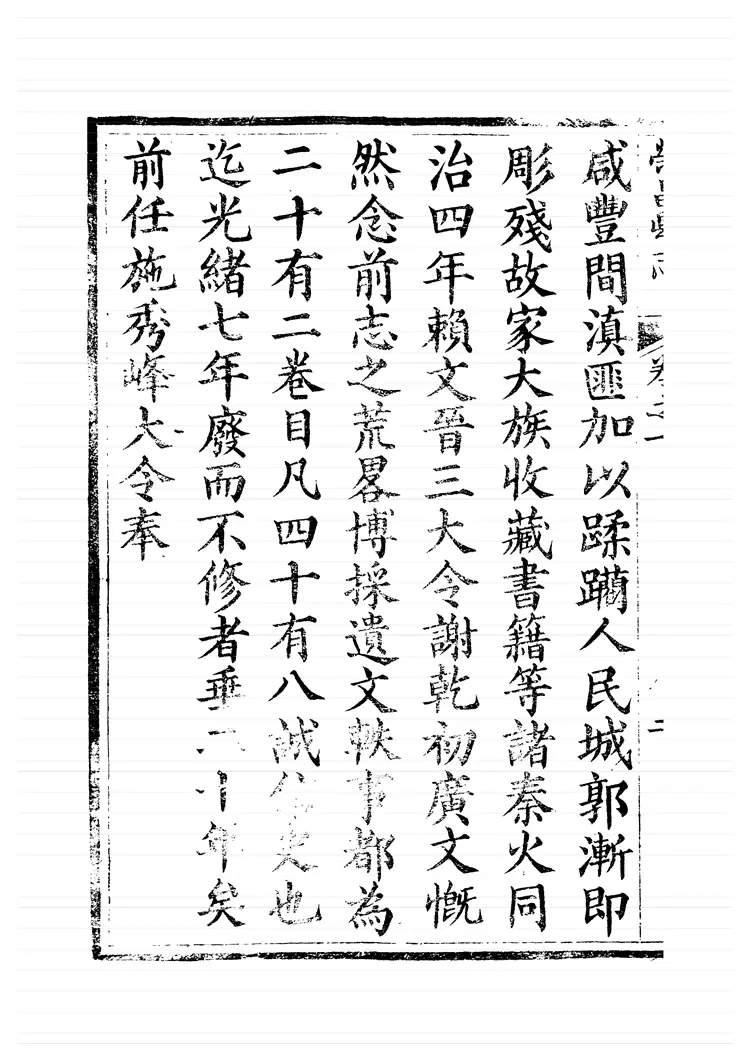 咸豐間滇匪加以蹂躪人民城郭漸即
彫殘故家大族收藏書籍等諸秦火同
治四年賴文晉三大令謝乾初廣文慨
然念前志之荒畧博採遺文軼事都為
二十有二卷目凡四十有八誠信史也
迄光緒七年廢而不修者垂二十年矣
前任施秀峰大令奉
榮昌縣志
卷之一
二